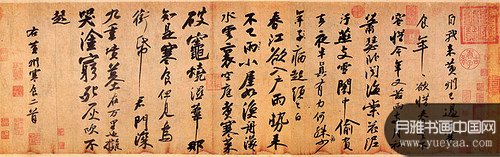 自我來黃州已過
食年〻欲惜春
容惜今年又苦雨
蕭瑟臥聞海棠花泥
汙燕支雪闇中偷負
去夜半真有力何殊少
年子病起須已白
春江欲入戶雨勢來
不已雨小屋如漁舟濛〻
水雲裏空庖煮寒菜
破竈燒濕葦那
知是寒食但見烏
銜帋君門深
九重墳墓在万里也擬
哭塗窮死灰吹不
起
右黃州寒食二首
月雅书画中国网
www.yueyaa.com